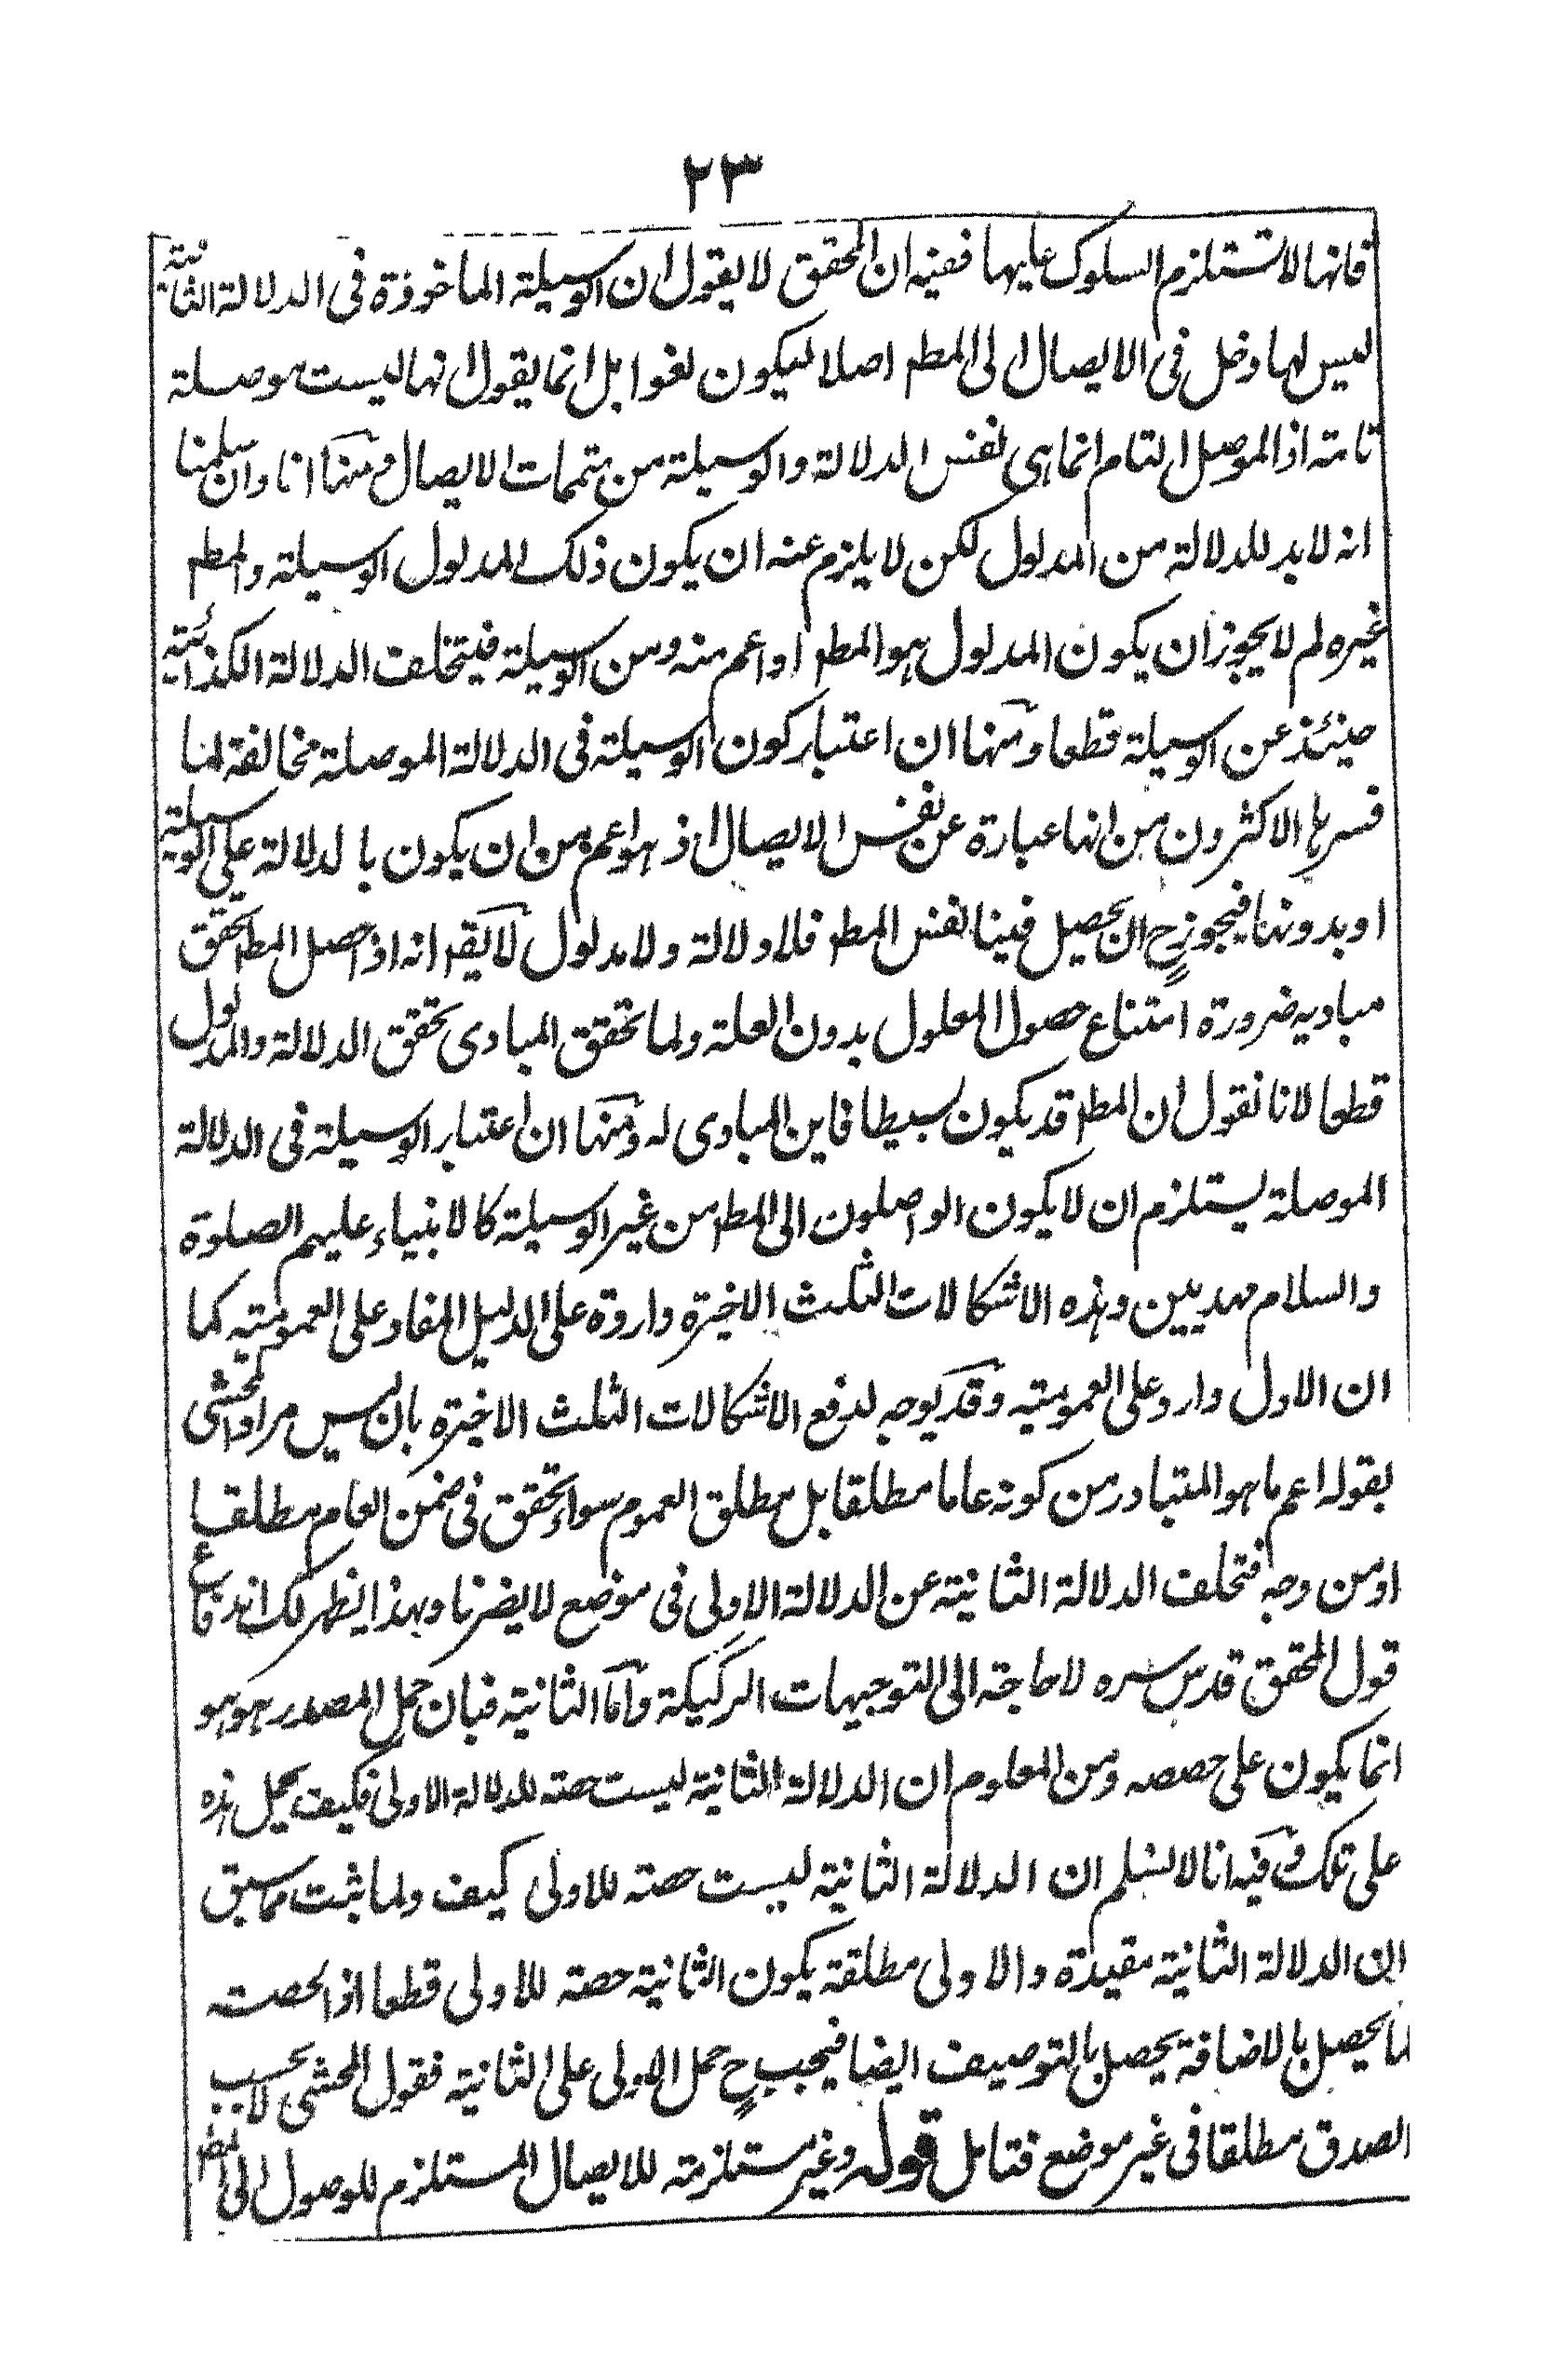 ٢٣
فانها لا تستلزم السلوك عليها ففيه ان المحقق لا يقول ان الوسيلة الماخوذة فى الدلالة الثانية
ليس لها دخل فى الايصال الى المطم اصلا ليكون لغوا بل انما يقول انها ليست موصلة
تامة اذ الموصل التام انما هى نفس الدلالة والوسيلة من متممات الايصال ومنها انا وان سلمنا
انه لا بد للدلالة من المدلول لكن لا يلزم عنه ان يكون ذلك المدلول الوسيلة والمطم
غيره لم لا يجوز ان يكون المدلول هو المطم او اعم منه ومن الوسيلة فيتخلف الدلالة الكذائية
حينئذ عن الوسيلة قطعا ومنها ان اعتبار كون الوسيلة فى الدلالة الموصلة مخالفة لما
فسرها الاكثرون من انها عبارة عن نفس الايصال اذ هو اعم من ان يكون بالدلالة على الوسيلة
او بدونها فيجوز ح ان يحصل فينا نفس المطم فلا دلالة ولا مدلول لا يقم انه اذ احصل المطم تحقق
مباديه ضرورة امتناع حصول المعلول بدون العلة ولما تحقق المبادى تحقق الدلالة والمدلول
قطعا لانا نقول ان المطم قد يكون بسيطا فاين المبادى له ومنها ان اعتبار الوسيلة فى الدلالة
الموصلة يستلزم ان لا يكون الواصلون الى المطم من غير الوسيلة كالانبياء عليهم الصلوة
والسلام مهديين وهذه الاشكالات الثلث الاخيرة واردة على الدليل المفاد على العمومية كما
ان الاول وارد على العمومية وقد يوجه لدفع الاشكالات الثلث الاخيرة بان ليس مراد المحشى
بقوله اعم ما هو المتبادر من كونه عاما مطلقا بل مطلق العموم سواء تحقق فى ضمن العام مطلقا
او من وجه فتخلف الدلالة الثانية عن الدلالة الاولى فى موضع لا يضرنا وبهذا يظهر لك اندفاع
قول المحقق قدس سره لا حاجة الى التوجيهات الركيكة واما الثانية فبان حمل المصدر هو هو
انما يكون على حصصه ومن المعلوم ان الدلالة الثانية ليست حصته للدلالة الاولى فكيف يحمل هذه
على تلك وفيه انا لا نسلم ان الدلالة الثانية ليست حصته للاولى كيف ولما ثبت مما سبق
ان الدلالة الثانية مقيدة والاولى مطلقة يكون الثانية حصته للاولى قطعا اذ الحصته
كما يحصل بالاضافة يحصل بالتوصيف ايضا فيجب ح حمل الاولى على الثانية فقول المحشى لا بحسب
الصدق مطلقا فى غير موضع فتامل قوله وغير مستلزمته للايصال المستلزم للوصول الى المطم